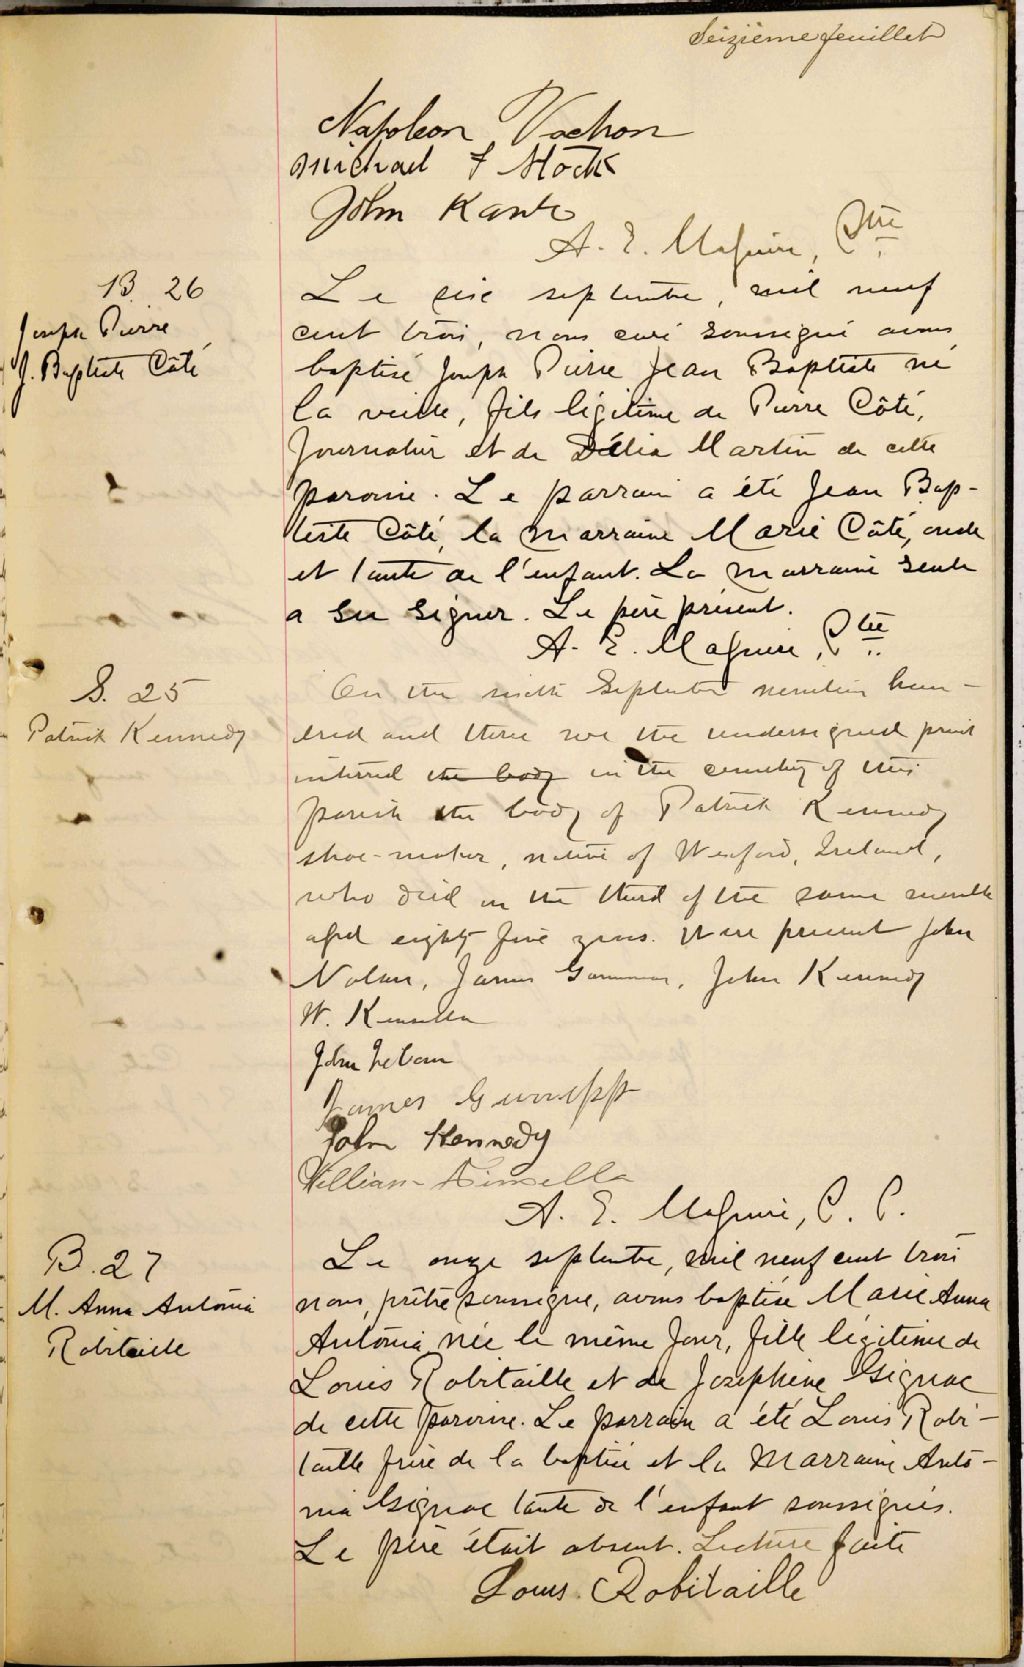 Seizième feuillet
Napoleon Vachon
Michael F Stock
John
A. E. Maguire, Ptre
B. 26
Joseph Pierre
J. Baptiste Côté
Le six septembre, mil neuf
cent trois, nous curé soussigné avons
baptisé Joseph Pierre Jean Baptiste né
la veille, fils légitime de Pierre Côté,
journalier et de Délia Martin de cette
paroisse. Le parrain a été Jean Bap-
tiste Côté, la marraine Marie Côté, oncle
et tante de l'enfant. La marraine seule
a su signer. Le père présent.
A. E. Maguire, Ptre
S. 25
Patrick Kennedy
On the sixth September nineteen hun-
dred and three we the undersigned priest
interred the body in the cemetery of this
parish the body of Patrick Kennedy
shoe-maker, native of Wexford, Ireland,
who died on the third of the same month
aged eighty five years. Were present John
Nolan, James, John Kennedy
W. Kinsella
John
James
John Kennedy
William Kinsella
A. E. Maguire, C. P.
B. 27
M. Anna Antonia
Robitaille
Le onze septembre, mil neuf cent trois
nous, prêtre soussigné, avons baptisé Marie Anna
Antonia née le même jour, fille légitime de
Louis Robitaille et de Joséphine Gignac
de cette paroisse. Le parrain a été Louis Robi-
taille frère de la baptisée et la marraine Anto-
nia Gignac tante de l'enfant soussignés.
Le père était absent. Lecture faite
Louis Robitaille